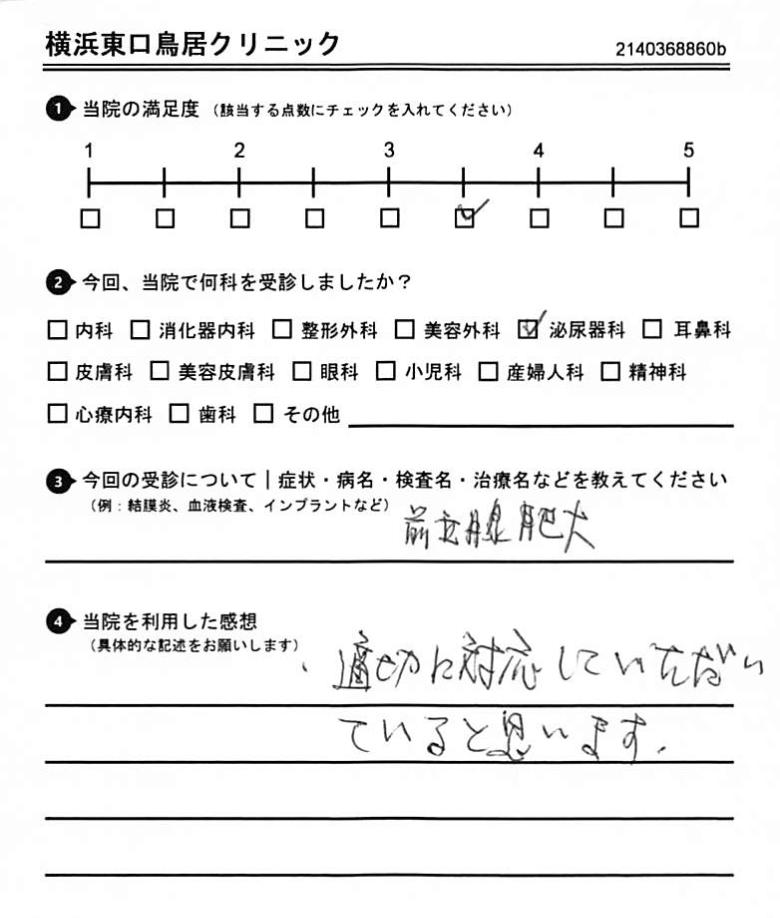 横浜東口鳥居クリニック 2140368860b
1 当院の満足度 （該当する点数にチェックを入れてください）
1 2 3 4 5
2 今回、当院で何科を受診しましたか？
内科 消化器内科 整形外科 美容外科 泌尿器科 耳鼻科
皮膚科 美容皮膚科 眼科 小児科 産婦人科 精神科
心療内科 歯科 その他
3 今回の受診について｜症状・病名・検査名・治療名などを教えてください
（例：結膜炎、血液検査、インプラントなど）
前立腺肥大
4 当院を利用した感想
（具体的な記述をお願いします）
・適切に対応していただい
ていると思います。